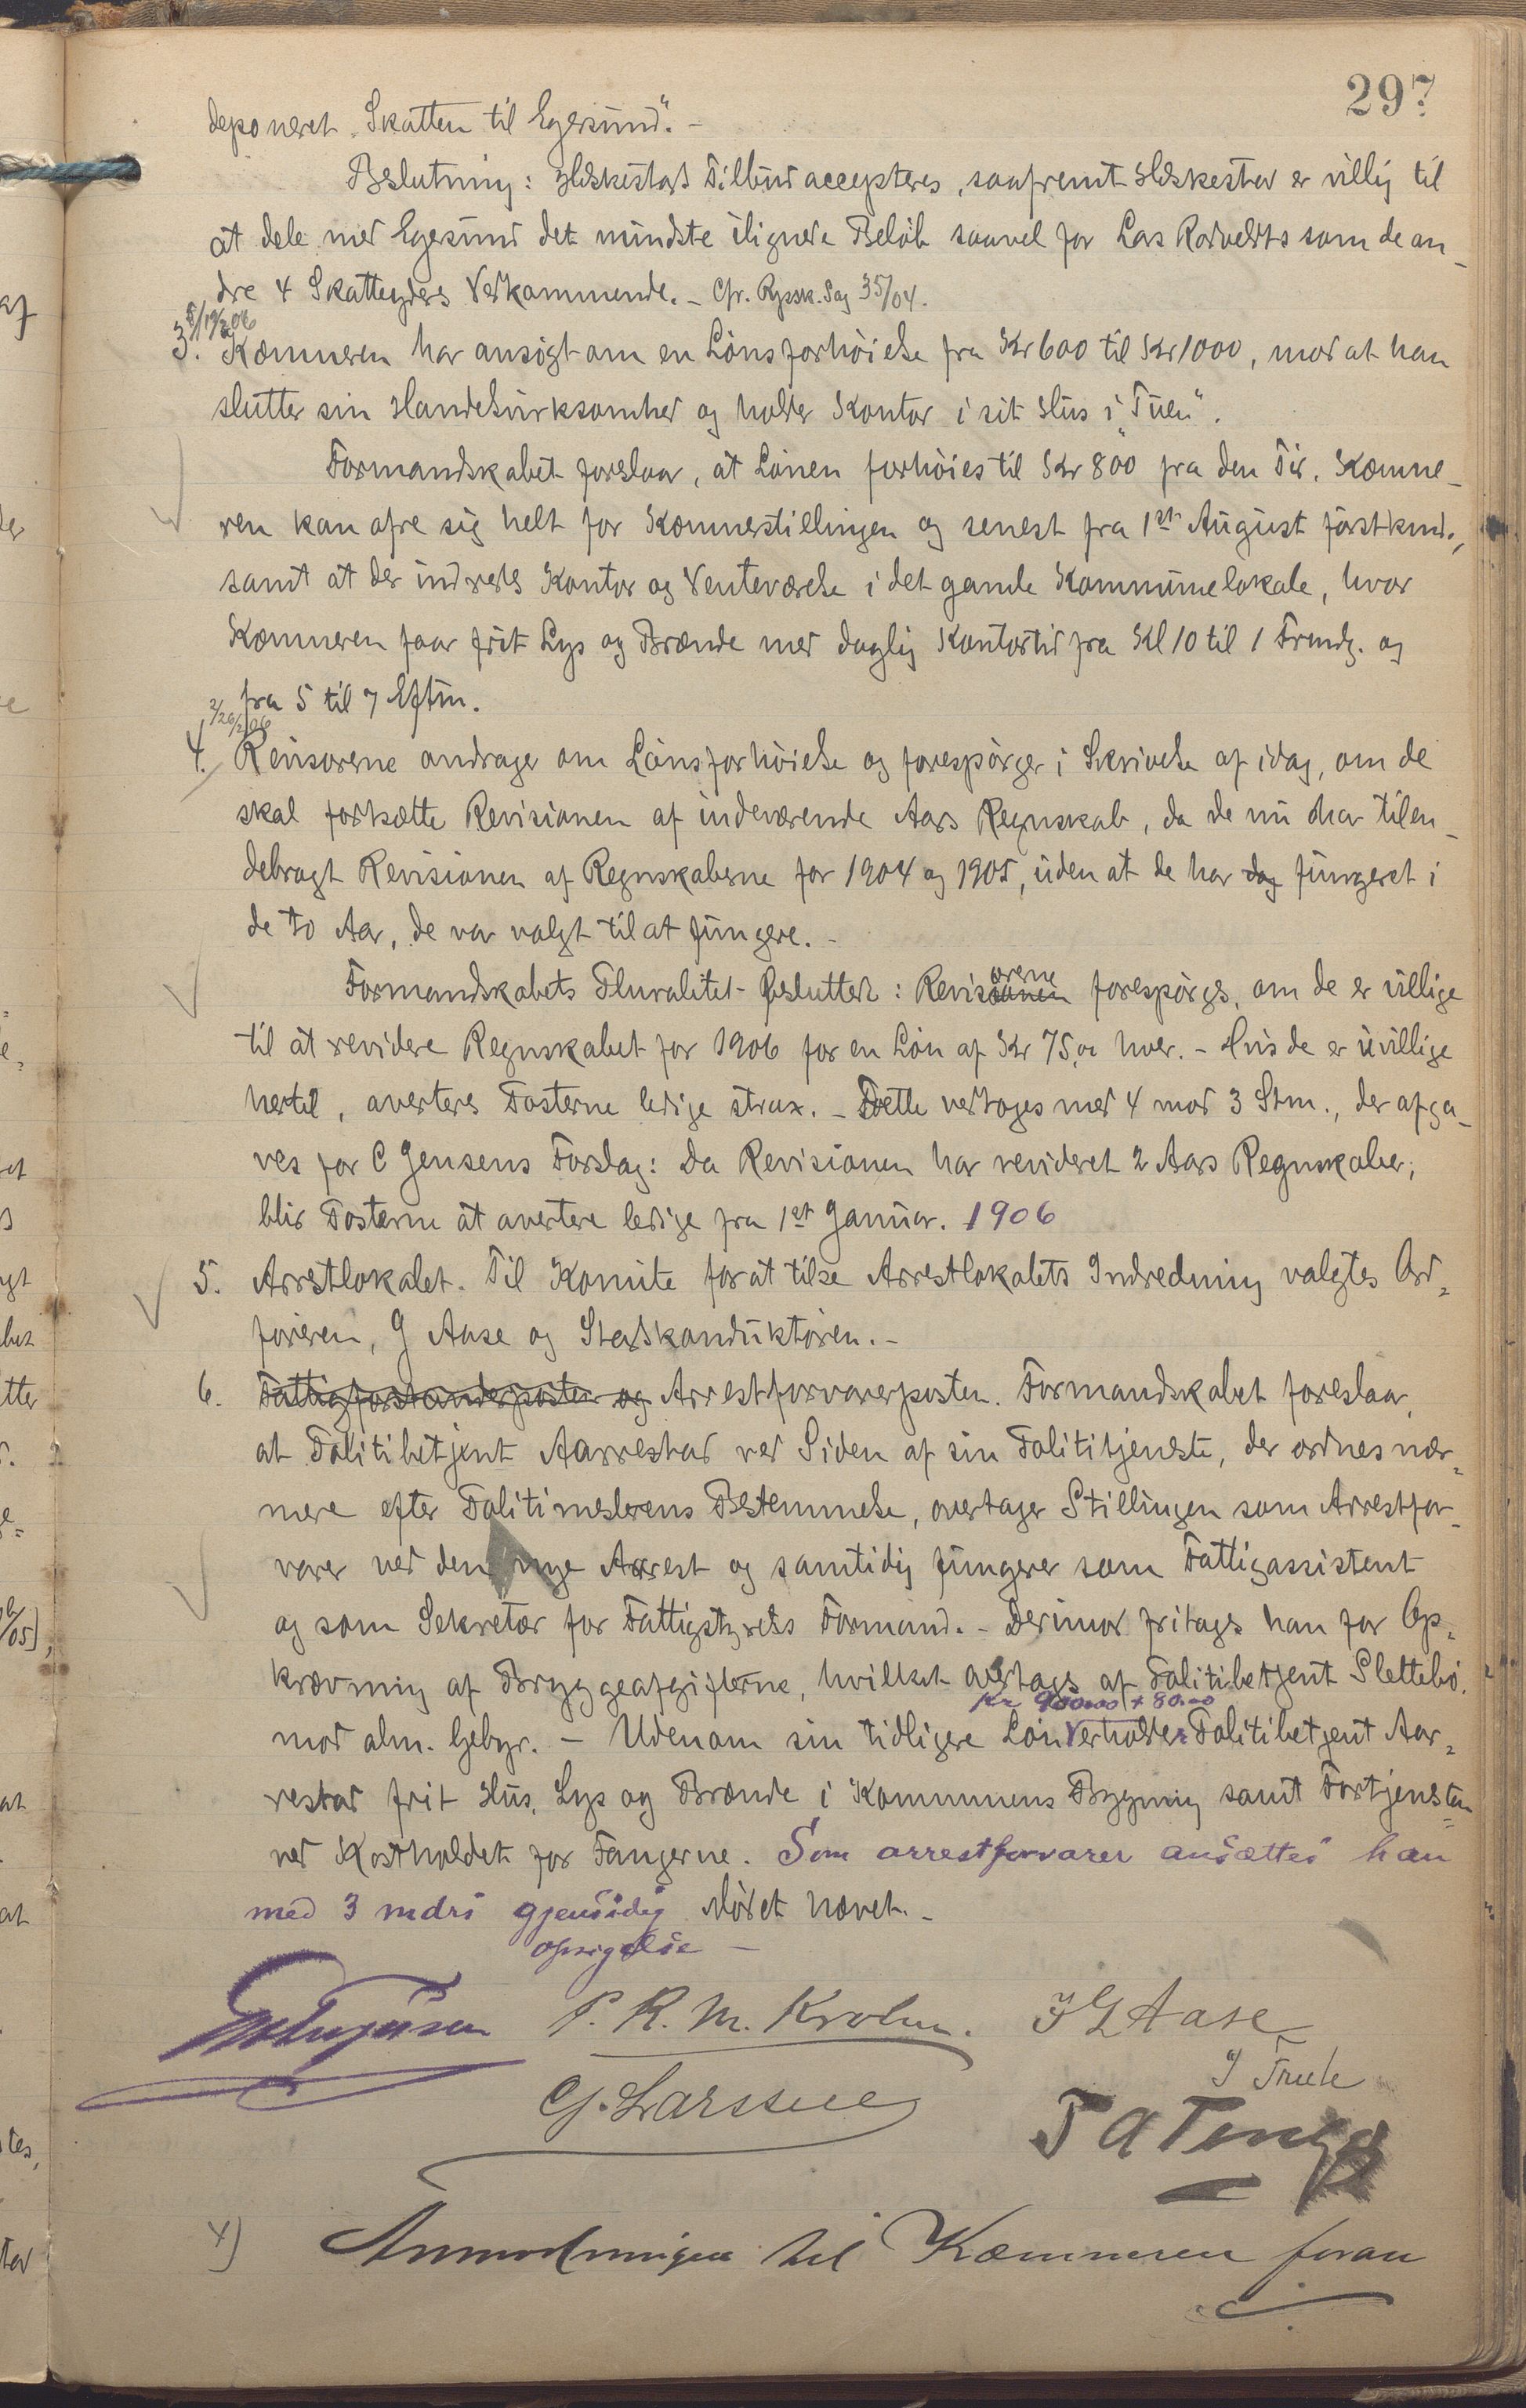 297
deponeret "Skatten til Egersund". -
Beslutning: Heskestads Tilbud accepteres, saafremt Heskestad er villig til
at dele med Egersund det mindste ilignede Beløb saavel for Lars Rodvelts som de an-
dre 4 Skatteyderes Vedkommende. - Cfr. Rgssk. Sag 35/04.
3. Kæmneren har ansøgt om en Lønsforhøielse fra Kr 600 til Kr 1000, mod at han
slutter sin Handelsvirksomhed og holder Kontor i sit Hus i "Tuen".
Formandskabet foreslaar, at Lønen forhøies til Kr 800 fra den Tid, Kæmne-
ren kan ofre sig helt for Kæmnerstillingen og senest fra 1ste August førstkmd.,
samt at der indredes Kontor og Venteværelse i det gamle Kommunelokale, hvor
Kæmneren faar frit Lys og Brænde med daglig Kontortid fra Kl 10 til 1 Frmdg. og
fra 5 til 7 Eftm.
4. Revisorerne andrager om Lønsforhøielse og forespørger i Skrivelse af idag, om de
skal fortsætte Revisionen af indeværende Aars Regnskab, da de nu har tilen-
debragt Revisionen af Regnskaberne for 1904 og 1905, uden at de har dog fungeret i
de to Aar, de var valgt til at fungere. -
Formandskabets Pluralitet besluttede: Revisorerne forespørges, om de er villige
til at revidere Regnskabet for 1906 for en Løn af Kr 75,00 hver. - Hvis de er uvillige
hertil, averteres Posterne ledige strax. - Dette vedtoges med 4 mod 3 Stm., der afga-
ves for C Jensens Forslag: Da Revisionen har revideret 2 Aars Regnskaber,
blir Posterne at avertere ledige fra 1ste Januar. 1906
5. Arrestlokalet. Til Komite for at tilse Arrestlokalets Indredning valgtes Ord-
føreren, J Aase og Stadskonduktøren. -
6. Fattigforstanderposten og Arrestforvarerposten. Formandskabet foreslaar,
at Politibetjent Aarrestad ved Siden af sin Polititjeneste, der ordnes nær-
mere efter Politimesterens Bestemmelse, overtager Stillingen som Arrestfor-
varer ved den nye Arrest og samtidig fungerer som Fattigassistent
og som Sekretær for Fattigstyrets Formand. - Derimod fritages han for Op-
krævning af Bryggeafgifterne, hvilket overtages af Politibetjent Slettebø
mod alm. Gebyr. - Udenom sin tidligere Løn Kr 900.00 + 80.00 erholder Politibetjent Aar-
restad frit Hus, Lys og Brænde i Kommunens Bygning samt Fortjensten
ved Kostholdet for Fangerne. Som arrestforvarer ansættes han
med 3 mdrs gjensidig opsigelse - Mødet hævet. -
P. R. M. Krohn. J G Aase
G. Larssen